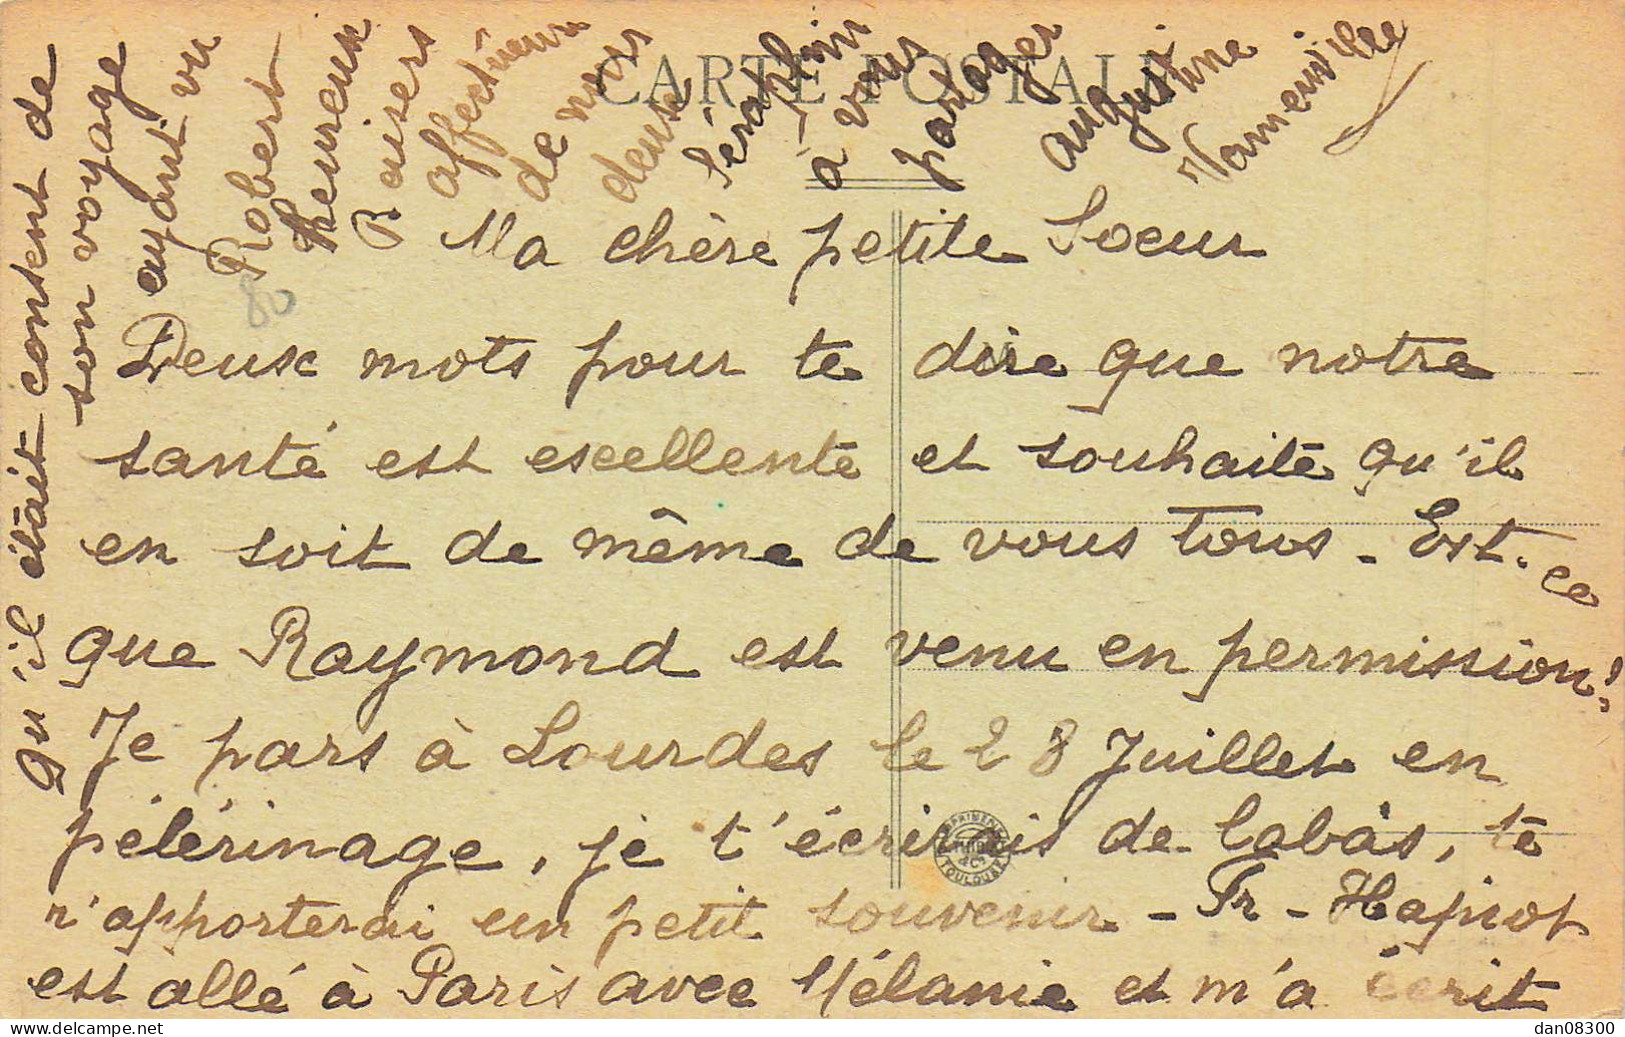 CARTE POSTALE
Ma chère petite Soeur
Deux mots pour te dire que notre
santé est excellente et souhaite qu'il
en soit de même de vous tous. Est-ce
que Raymond est venu en permission?
Je pars à Lourdes le 28 Juillet en
pélérinage, je t'écrirais de labàs, te
r'apporterai un petit souvenir - Fr -
est allé à Paris avec Mélanie et m'a écrit
qu'il était content de
son voyage
ayant vu
Robert
heureux
Baisers
affectueux
de nous
deux
Séraphin
à vous
partager
Augustine
Vameuville
80
TOULOUSE
dan08300